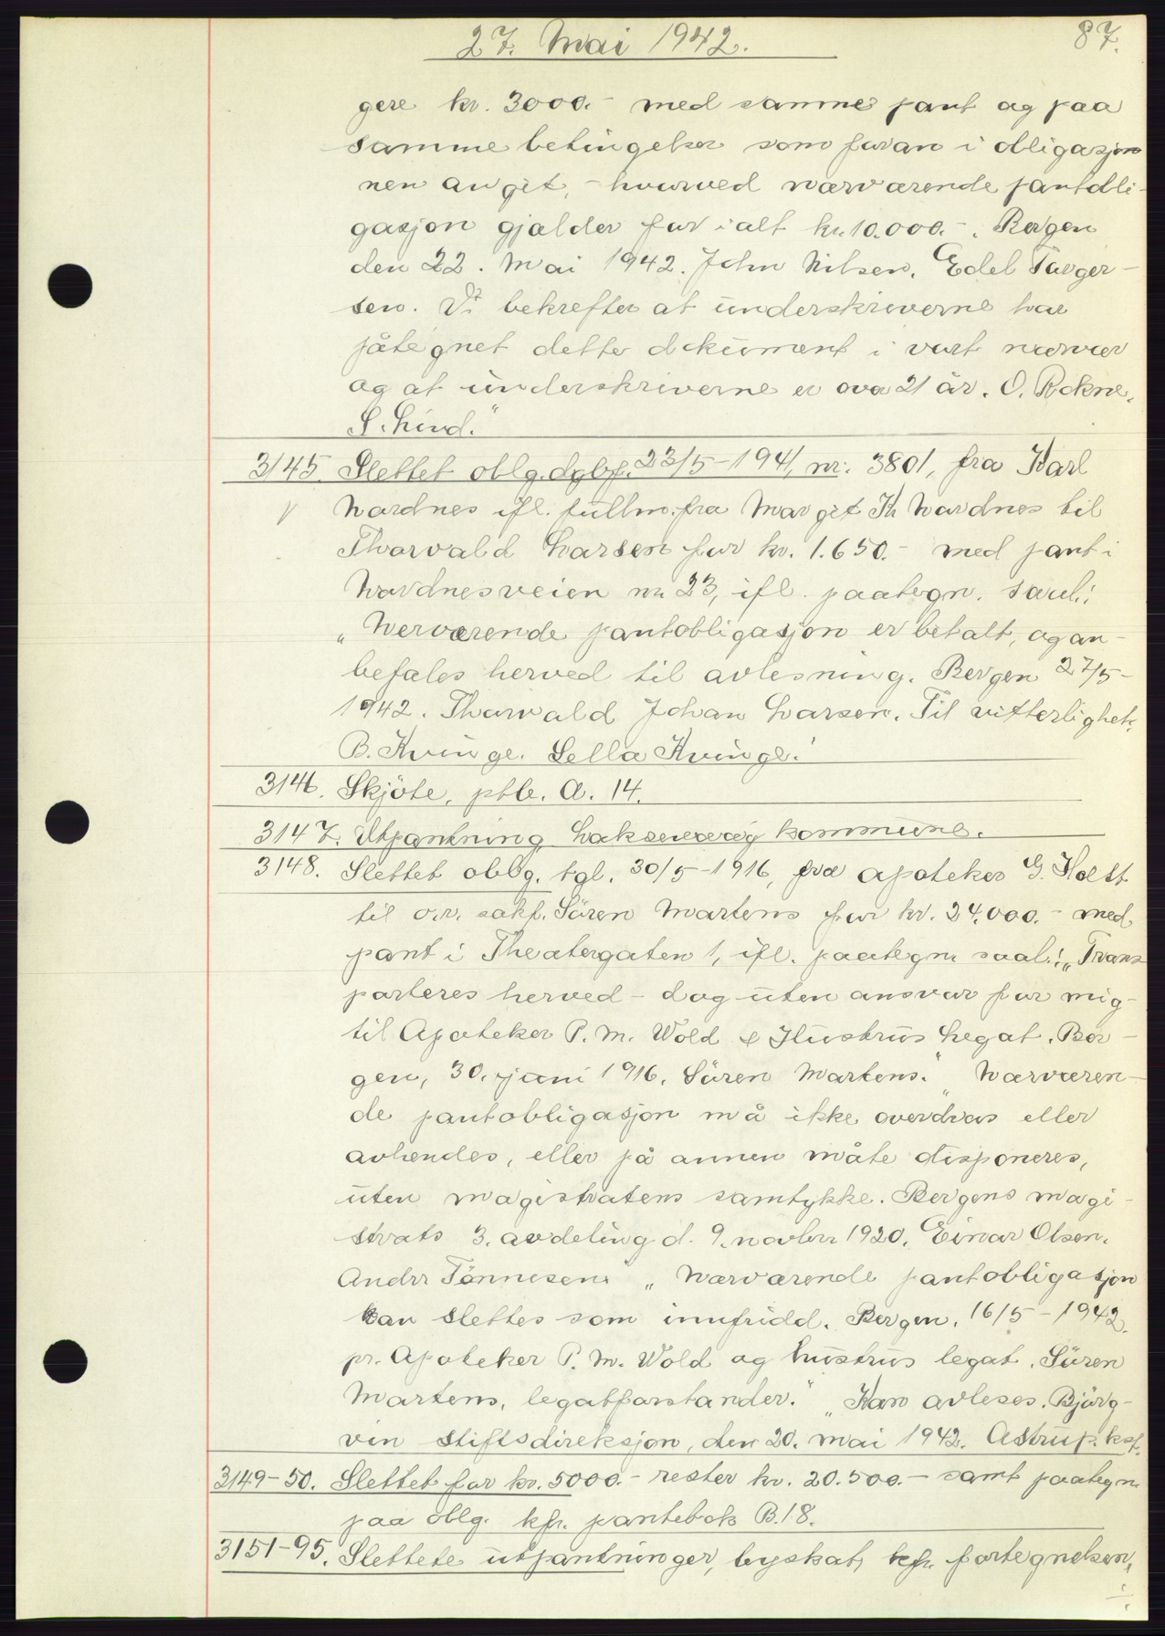 27. Mai 1942.
87.
gere kr. 3000.- med samme pant og paa
samme betingelser som foran i obligasjon
nen angit, - hvorved nærværende pantobli-
gasjon gjelder for ialt kr. 10.000.-. Bergen
den 22. Mai 1942. John Nilsen. Edel Torger-
sen. Vi bekrefter at underskriverne har
påtegnet dette dokument i vårt nærvær
og at underskriverne er over 21 år. O. Rokne.
S. Lind."
3145. Slettet oblg. dgbf. 23/5-1941, nr. 3801, fra Karl
V Nordnes ifl. fullm. fra Margit Kr Nordnes til
Thorvald Larsen for kr. 1.650.- med pant i
Nordnesveien nr 23, ifl. paategn. saal.:
"Nerværende pantobligasjon er betalt, og an-
befales herved til avlesning. Bergen 27/5-
1942. Thorvald Johan Larsen. Til vitterlighet:
B. Kvinge. Sella Kvinge."
3146. Skjöte, ptb. A. 14.
3147. Utpantning Laksevaag kommune.
3148. Slettet oblg. tgl. 30/5-1916, fra apoteker G. Holdt
til o.r. sakf. Sören Martens for kr. 24.000.- med
pant i Theatergaten 1, ifl. paategn saal.: "Trans
porteres herved - dog uten ansvar for mig -
til Apoteker P. M. Wold & Hustrus Legat. Ber-
gen, 30. juni 1916. Sören Martens." "Nærværen-
de pantobligasjon må ikke overdras eller
avhendes, eller på annen måte disponeres,
uten magistratens samtykke. Bergens magi-
strats 3. avdeling d. 9. novbr 1920. Einar Olsen.
Andr Tönnesen." "Nærværende pantobligasjon
kan slettes som innfridd. Bergen, 16/5-1942.
pr. Apoteker P. M. Wold og hustrus legat. Sören
Martens, legatforstander." "Kan avleses. Björg-
vin Stiftsdireksjon, den 20. mai 1942. Astrup. kst.
3149-50. Slettet for kr. 5000.- rester kr. 20.500.- samt paategn
paa oblg. kfr. pantebok B.18.
3151-95. Slettete utpantninger, byskat, kfr. fortegnelsen.